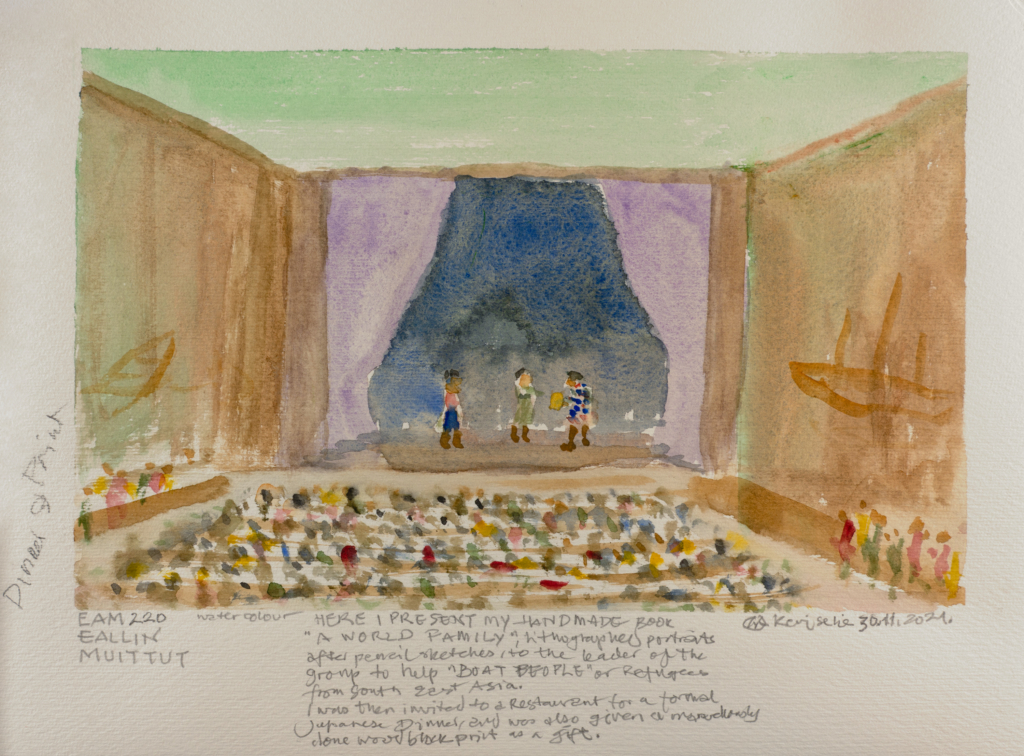 Dinner & Print
EAM 220 watercolour
EALLIN
MUITTUT
HERE I PRESENT MY HANDMADE BOOK
"A WORLD FAMILY", lithographed portraits
after pencil sketches, to the leader of the
group to help "BOAT PEOPLE" or Refugees
from South East Asia.
I was then invited to a Restaurant for a formal
Japanese Dinner, and was also given a marvelously
done wood block print as a gift.
2021.